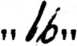 „16"